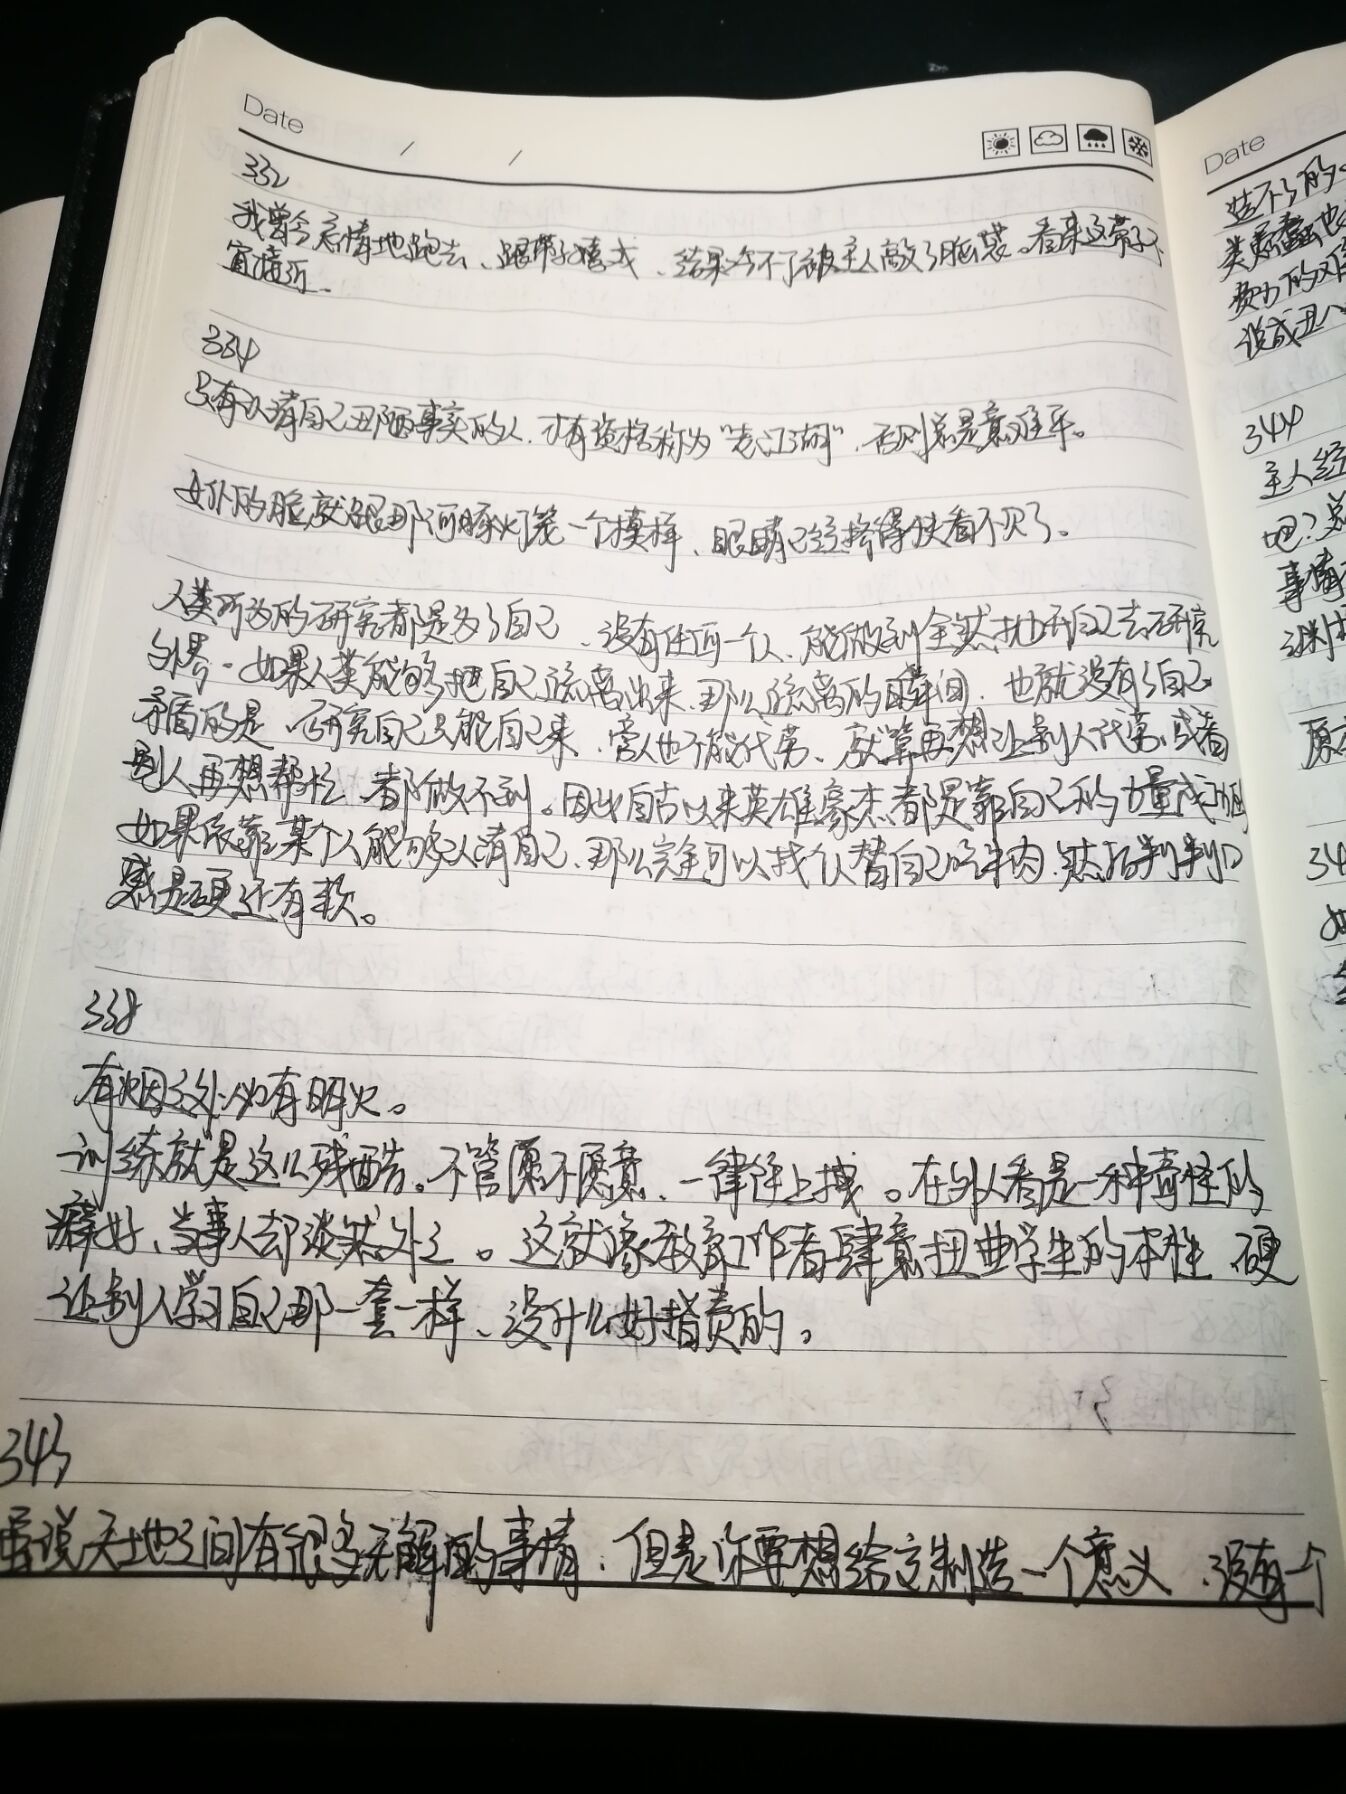 Date
332
我曾今忘情地跑去、跟带子嬉戏、结果冷不丁被主人敲了脑袋。看来这带子不
宜接近.
334
只有认清自己丑陋事实的人.才有资格称为“老江湖”,否则总是意难平。
的脸就跟那河豚灯笼一个模样、眼睛已经挤得快看不见了。
人类所为的研究都是为了自己、没有任何一个人、能做到全然抛开自己去研究
外界.如果人类能够把自己疏离出来.那么疏离的瞬间.也就没有了自己.
矛盾的是、研究自己只能自己来.旁人也不能代劳、就算再想让别人代劳、或者
别人再想帮忙、都做不到。因此自古以来英雄豪杰都是靠自己的力量成功
如果依靠某个人能够认清自己、那么完全可以找个人替自己吃牛肉.然后判判口
感是硬还有软。
338
有烟之处、必有明火。
训练就是这么残酷。不管愿不愿意、一律往上拽。在外人看是一种奇怪的
癖好、当事人却淡然处之。这就像教育工作者肆意扭曲学生的本性 硬
让别人学习自己那一套一样、没什么好指责的。
343
虽说天地之间有很多无解的事情.但是你要想给它制造一个意义、没有一个
Date
造不了的
344
主人经
吧?
事情
34